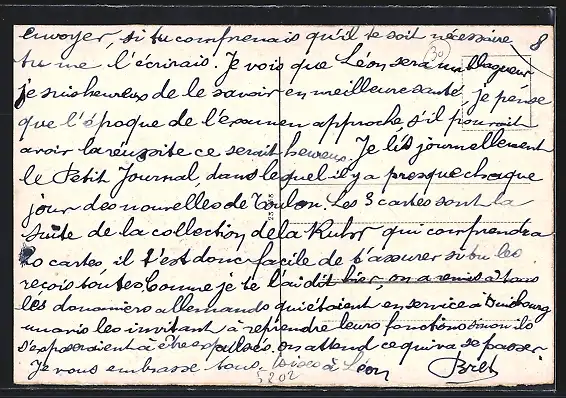 envoyer, si tu comprenais qu'il te soit nécessaire 8
tu me l'écrirais. Je vois que Léon sera un blagueur
je suis heureux de le savoir en meilleure santé, je pense
que l'époque de l'examen approche s'il pourait
avoir la réussite ce serait heureux. Je lis journellement
le Petit Journal, dans lequel il y a presque chaque
jour des nouvelles de Toulon. Les 3 cartes sont la
suite de la collection de la Ruhr qui comprendra
20 cartes il t'est donc facile de t'assurer si tu les
reçois toutes. Comme je te l'ai dit hier, on a remis à tous
les douaniers allemands qui étaient en service à Duisbourg
un avis les invitant à reprendre leurs fonctions sinon ils
s'exposeraient à être expulsés. on attend ce qui va se passer.
Je vous embrasse tous, bises à Léon Bret
5202